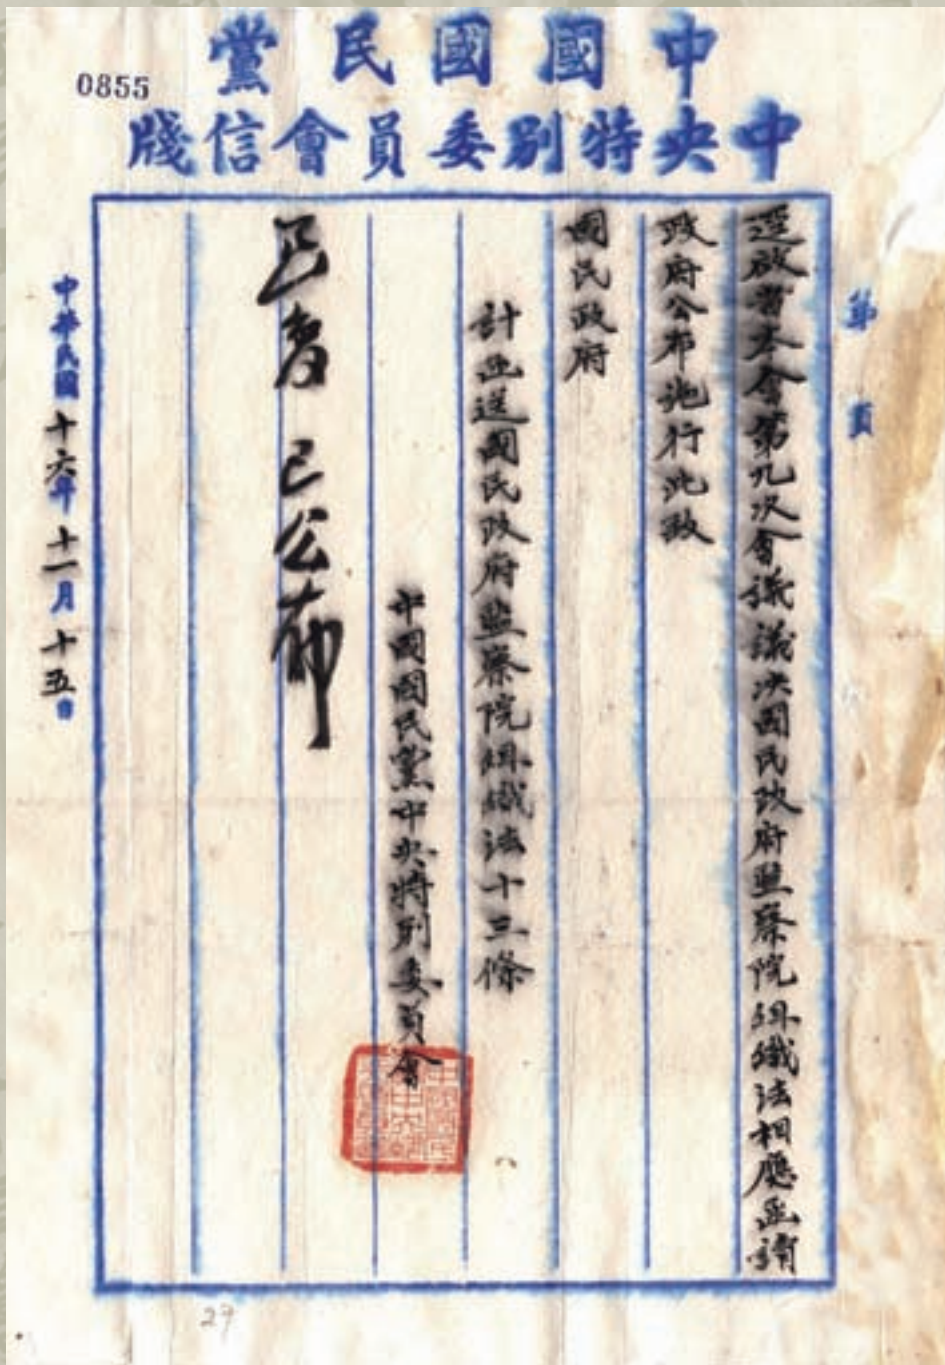 0855
中國國民黨
中央特別委員會信牋
第 頁
逕啟者本會第九次會議議决國民政府監察院組織法相應函請
政府公布施行此致
國民政府
計函送國民政府監察院組織法十三條
中國國民黨中央特別委員會
已公布
中華民國十六年十一月十五日
27